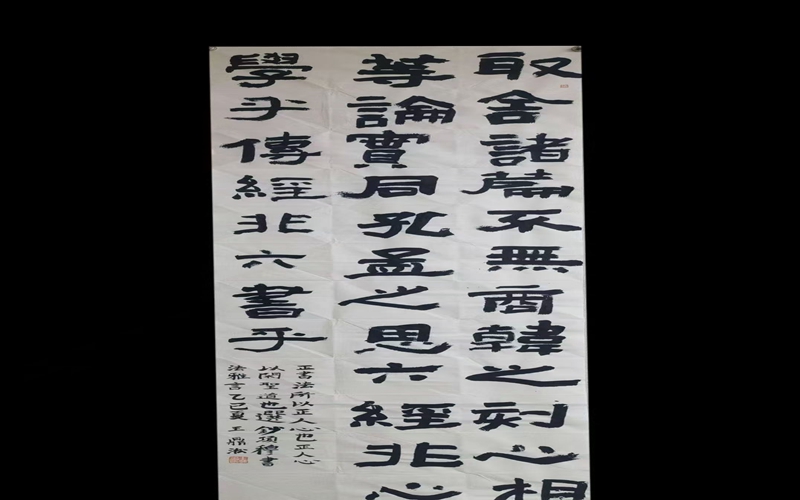 取舍諸篇不無商韓之刻心相
等論實同孔孟之思六經非心
學乎傳經非六書乎
正書法所以正人心也正人心
以閑聖道也選鈔項穆書
法雅言乙巳夏王鼎